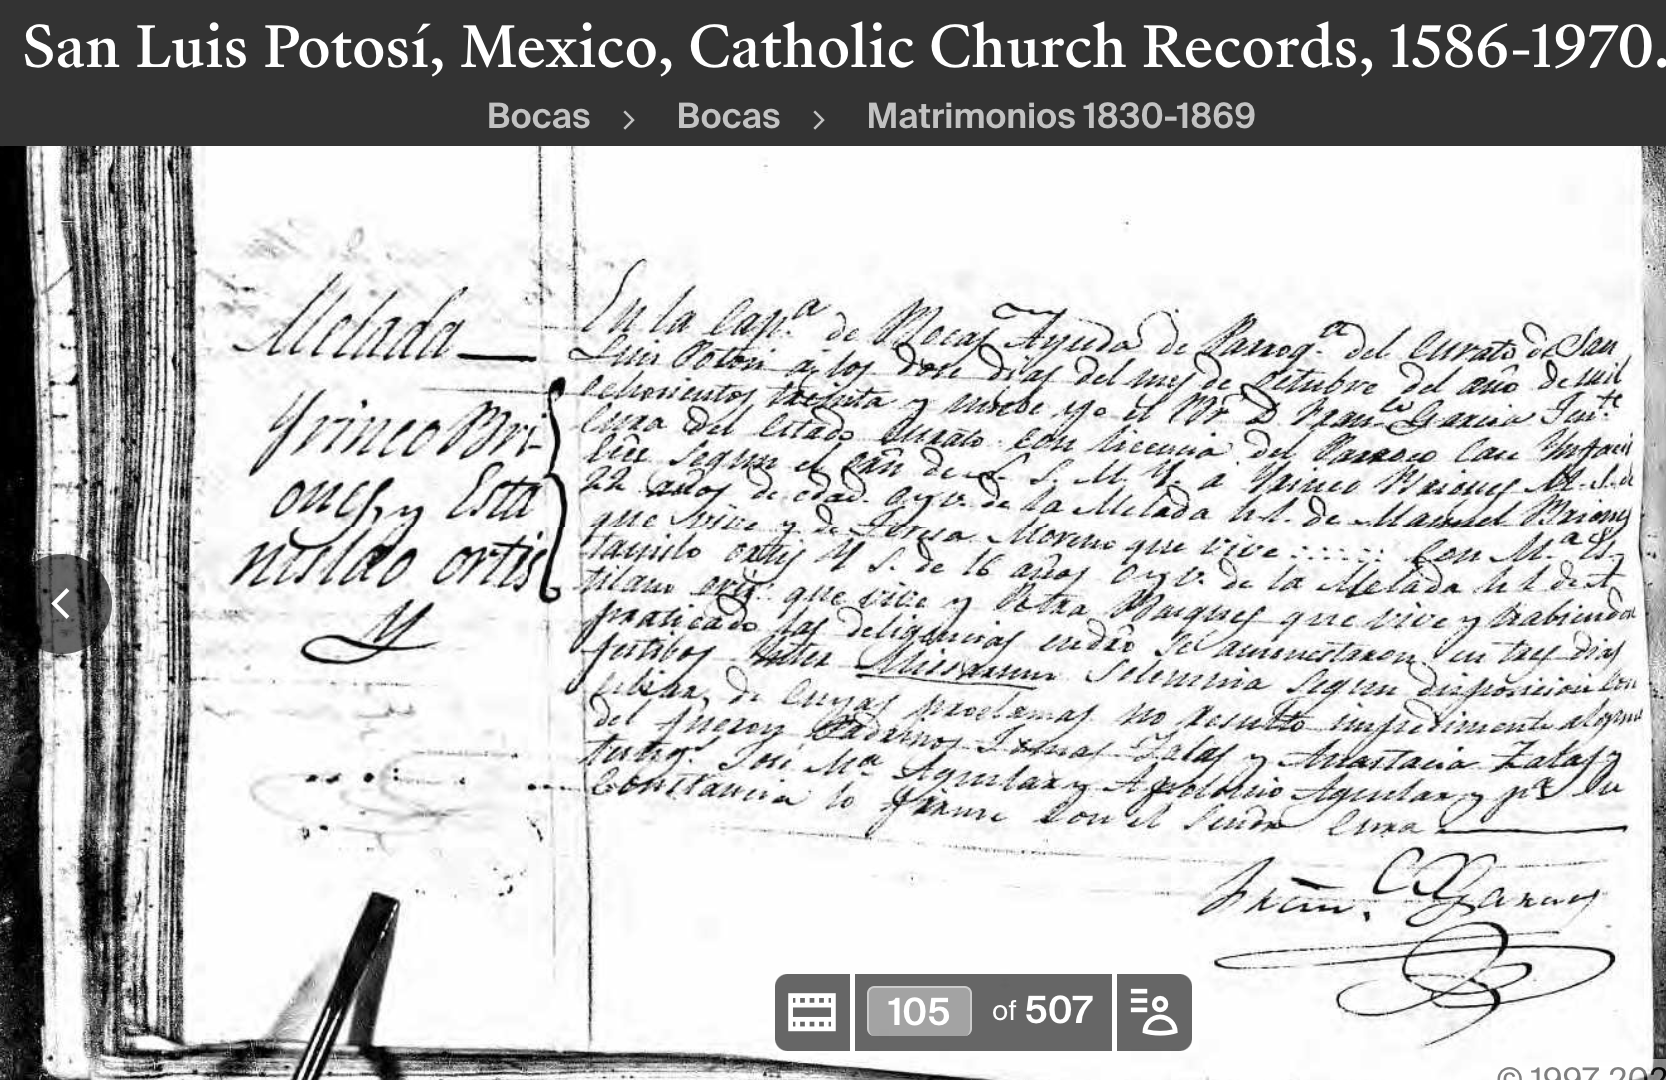 San Luis Potosí, Mexico, Catholic Church Records, 1586-1970.
Bocas > Bocas > Matrimonios 1830-1869
Melada
Yrineo Bri-
ones, y Esta
nislao ortis
En la Cap.a de Bocas Ayuda de Parroq.a del Curato de San
Luis Potosi a los dose dias del mes de Octubre del año de mil
ochosientos treinta y nueve yo el Br D. Fran.co Garcia Ten.te
Cura del Citado Curato con licencia del Parroco
segun el de N. S. M. Y. a Yrineo Briones
22 años de edad. O. y v. de la Melada h. l. de Manuel Briones
que vive y de Teresa Moreno que vive con M.a Es
tanislo ortis de 16 años O. y v. de la Melada h. l. de
ortis que vive y Petra que vive y habiendo
praticado las diligencias se amonestaron en tres dias
festibos Inter Missarum Solemnia segun disposicion Con
siliar, de cuyas proclamas no resulto impedimento alguno
del fueron Padrinos Tomas Zalas y Anastacia Zalas y
testig.s José M.a Aguilar y Apolonio Aguilar y p.a su
Constancia lo firme con el Señor Cura
Garcia
105 of 507
© 1997-202